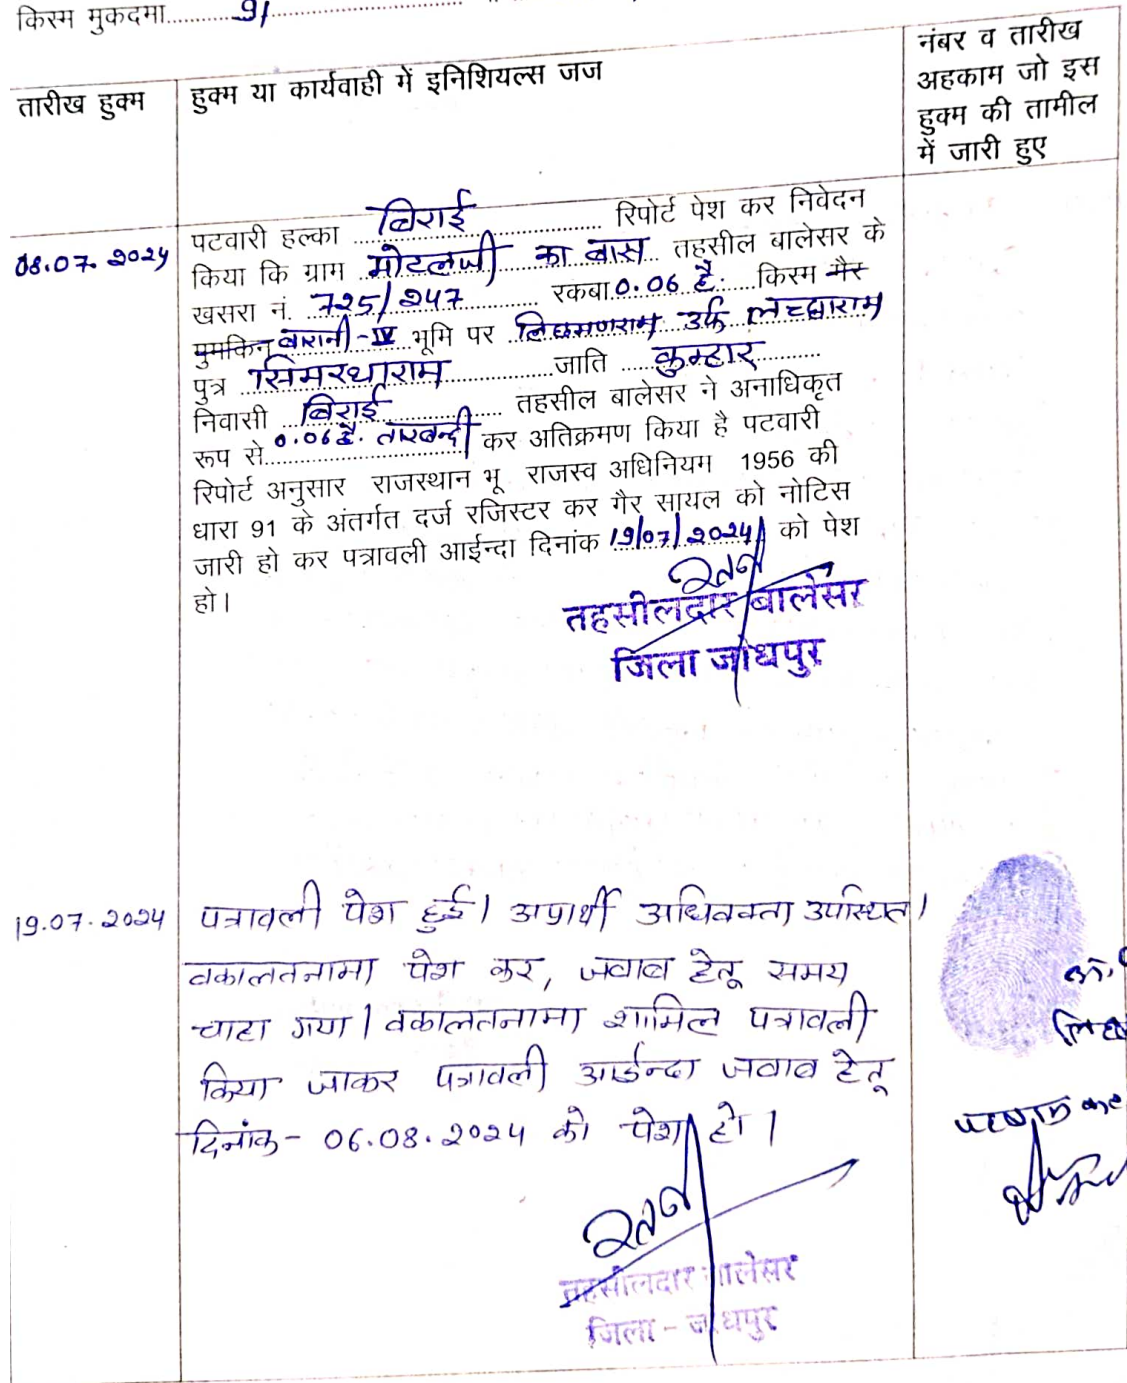 किस्म मुकदमा 91
तारीख हुक्म
हुक्म या कार्यवाही में इनिशियल्स जज
नंबर व तारीख
अहकाम जो इस
हुक्म की तामील
में जारी हुए
08.07.2024
पटवारी हल्का बिराई रिपोर्ट पेश कर निवेदन
किया कि ग्राम मोटलजी का बास तहसील बालेसर के
खसरा नं. 725/247 रकबा 0.06 है. किस्म गैर
मुमकिन बारानी-IV भूमि पर लिछमणराम उर्फ लच्छाराम
पुत्र सिमरथाराम जाति कुम्हार
निवासी बिराई तहसील बालेसर ने अनाधिकृत
रूप से 0.06 है. तारबन्दी कर अतिक्रमण किया है पटवारी
रिपोर्ट अनुसार राजस्थान भू राजस्व अधिनियम 1956 की
धारा 91 के अंतर्गत दर्ज रजिस्टर कर गैर सायल को नोटिस
जारी हो कर पत्रावली आईन्दा दिनांक 19/07/2024 को पेश
हो।
तहसीलदार बालेसर
जिला जोधपुर
19.07.2024
पत्रावली पेश हुई। अप्रार्थी अधिवक्ता उपस्थित।
वकालतनामा पेश कर, जवाब हेतू समय
चाहा गया। वकालतनामा शामिल पत्रावली
किया जाकर पत्रावली आईन्दा जवाब हेतू
दिनांक - 06.08.2024 को पेश हो।
तहसीलदार बालेसर
जिला - जोधपुर